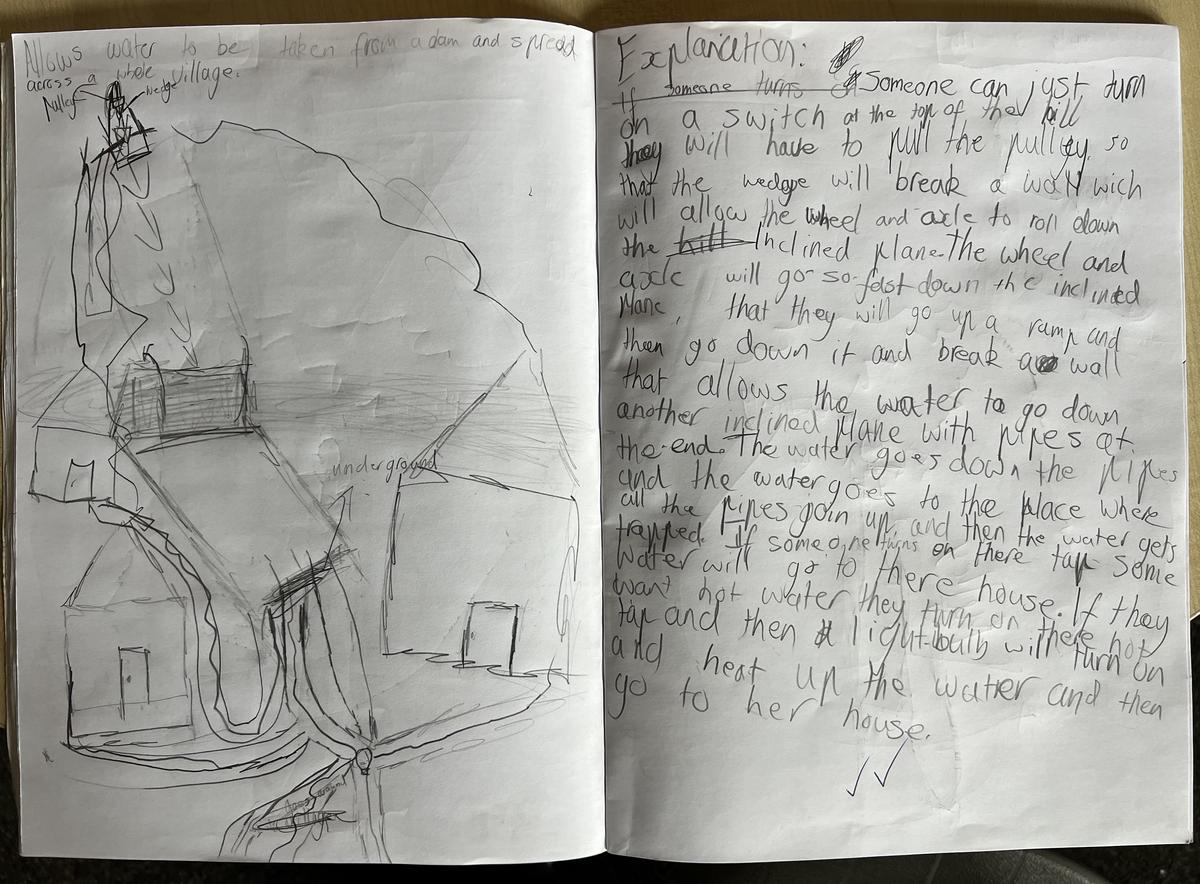 Allows water to be taken from a dam and spread
across a whole village.
Pulley
wedge
underground
Explanation:
If someone turns Someone can just turn
on a switch at the top of the hill
they will have to pull the pulley, so
that the wedge will break a wall wich
will allow the wheel and axle to roll down
the hill Inclined plane. The wheel and
axle will go so fast down the inclined
Plane, that they will go up a ramp and
then go down it and break a wall
that allows the water to go down
another inclined plane with pipes at
the end. The water goes down the pipes
and the water goes to the place where
all the pipes join up, and then the water gets
trapped. If someone turns on there tap some
water will go to there house. If they
want hot water they turn on there hot
tap and then a light-bulb will turn on
and heat up the water and then
go to her house.